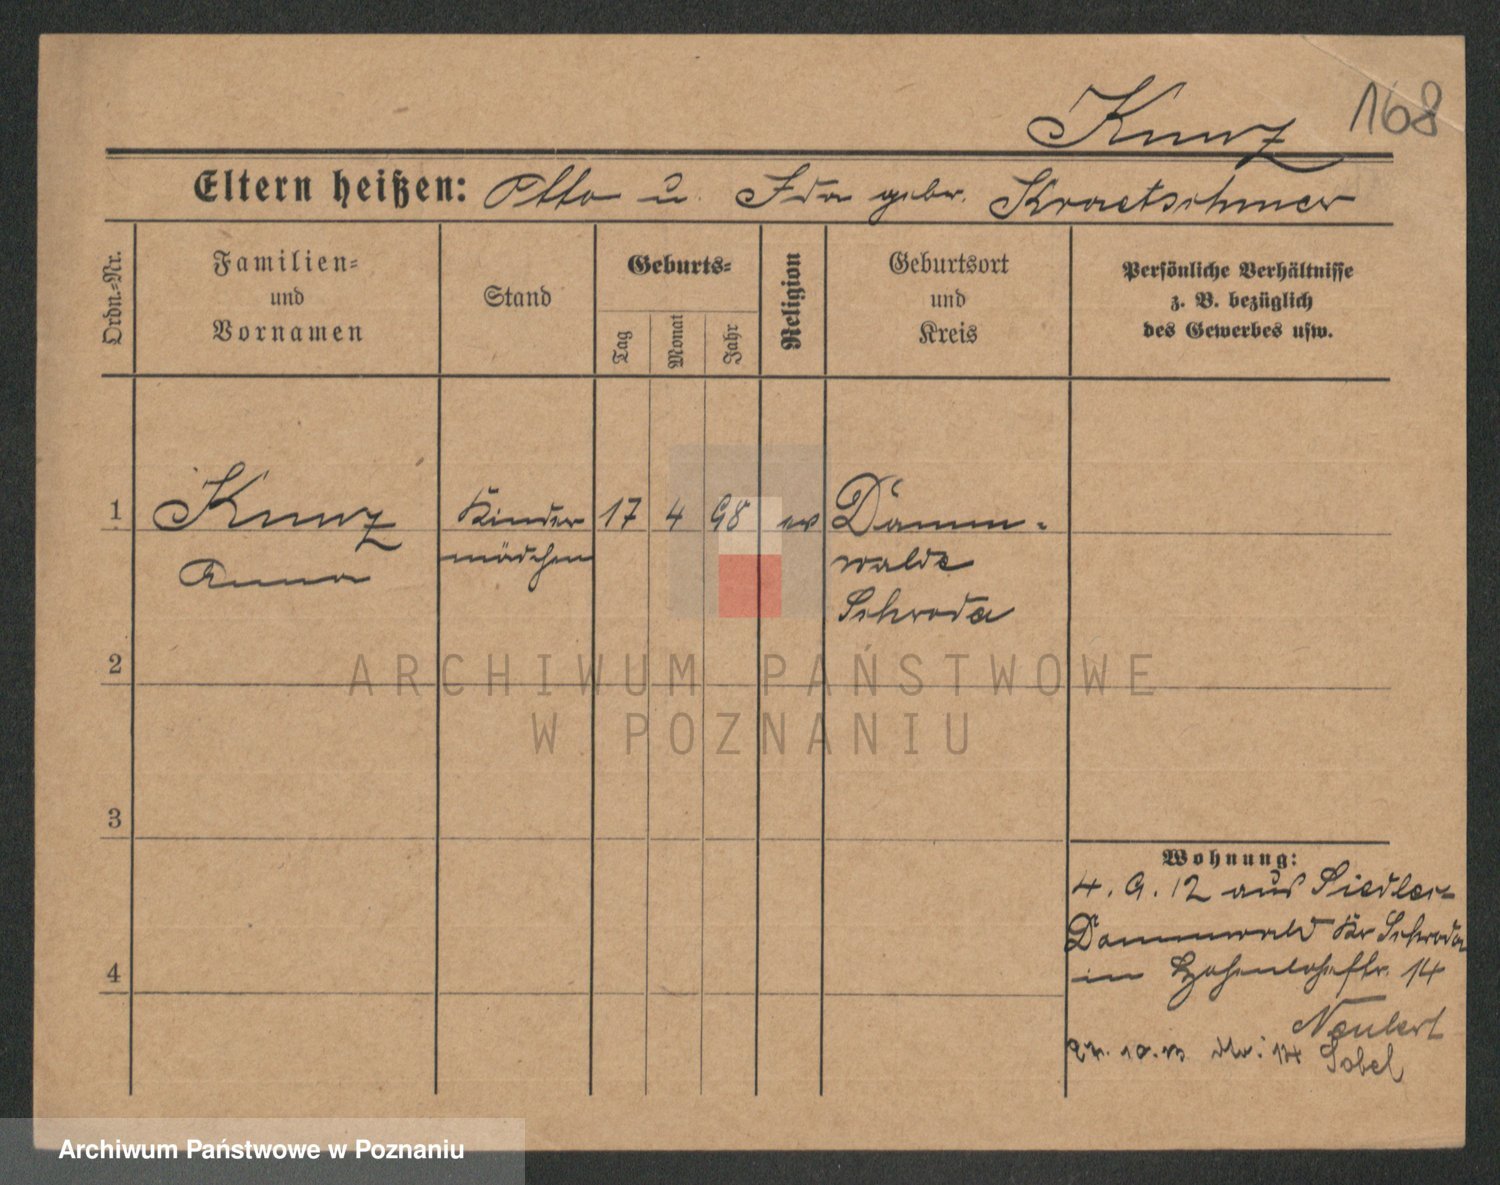 168
Kunz
Eltern heißen: Otto u. Ida gebr. Kraetschmer
Ordn.-Nr.
Familien-
und
Vornamen
Stand
Geburts-
Tag
Monat
Jahr
Religion
Geburtsort
und
Kreis
Persönliche Verhältnisse
z. B. bezüglich
des Gewerbes usw.
1 Kunz Kinder 17 4 98 ev Damm-
Anna mädchen walde
Schroda
2
3
4
Wohnung:
4. 9. 12 aus Siedler-
Dammwald Kr Schroda
in Hohenlohestr. 14
Neubert
10. 14 Sobel
ARCHIWUM PAŃSTWOWE
W POZNANIU
Archiwum Państwowe w Poznaniu